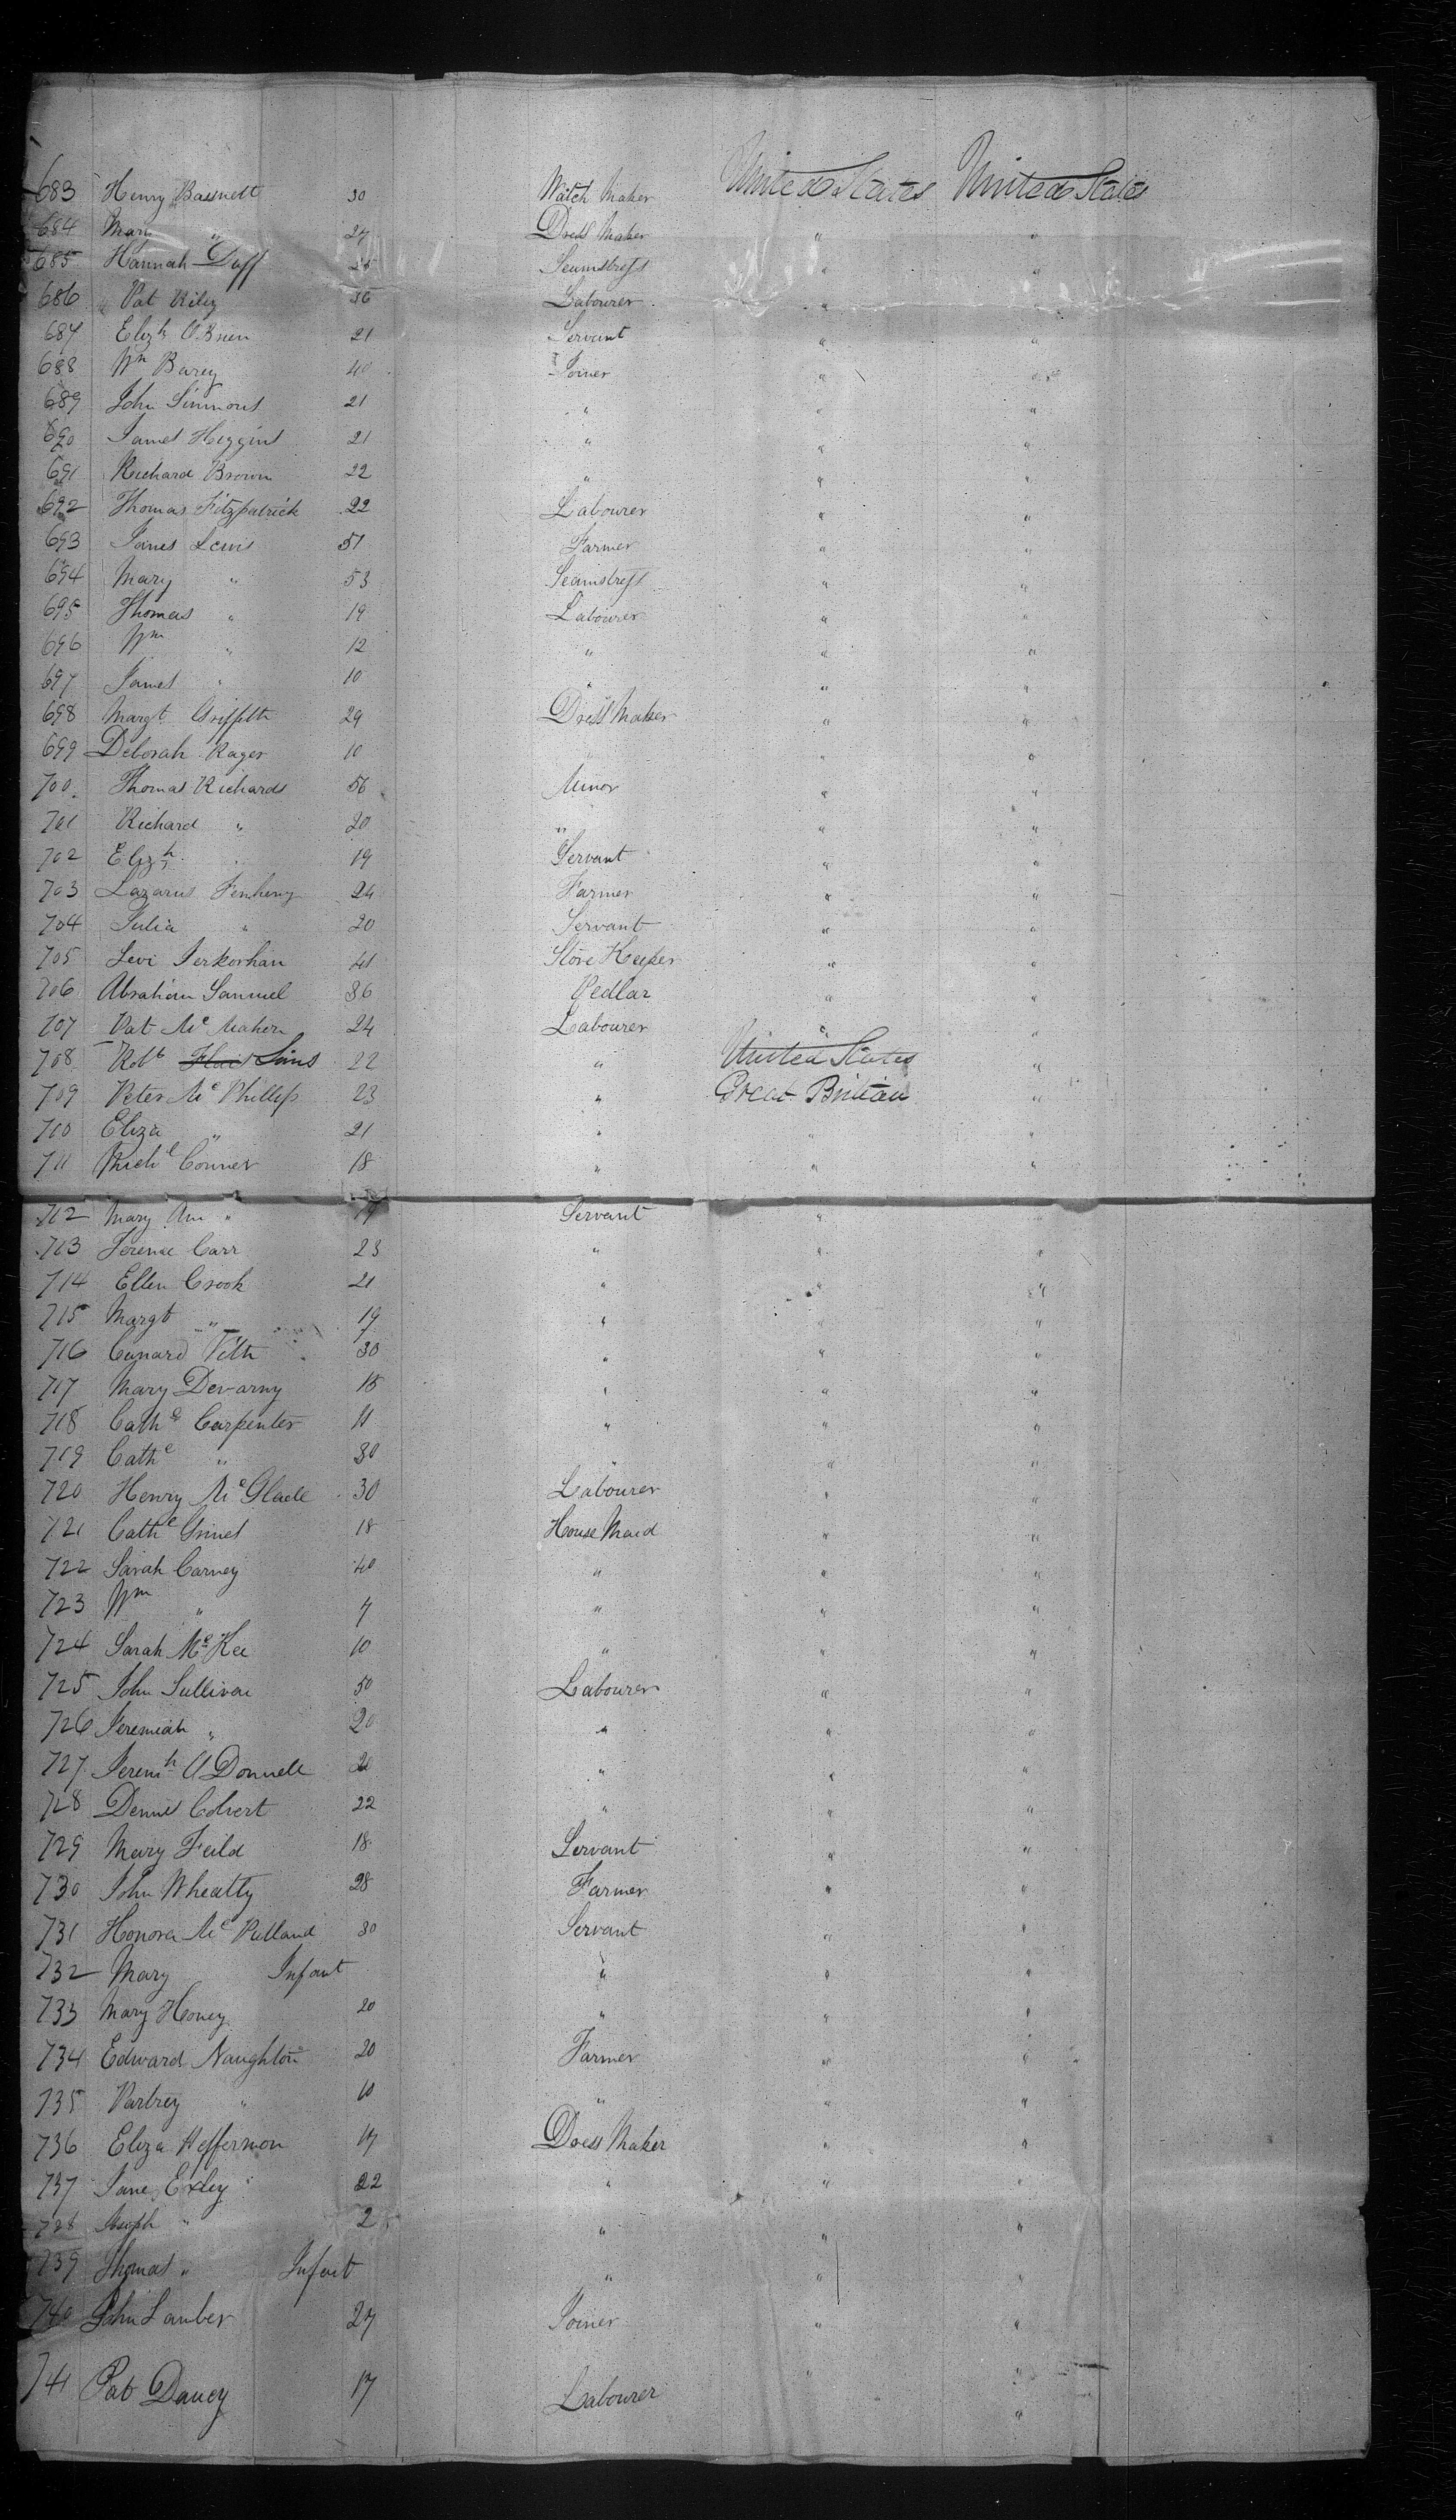 683 Henry Bassnett 30 Watch Maker United States United States
684 Mary " 27 Dress Maker " "
685 Hannah Duff 25 Seamstress " "
686 " Pat Riley 36 Labourer "
687 Elizh O.Brien 21 Servant " "
688 Wm Barey 40 Joiner " "
689 John Simmons 21 " " "
690 James Higgins 21 " " "
691 Richard Brown 22 " " "
692 Thomas Fitzpatrick 22 Labourer " "
693 James Lewis 51 Farmer " "
694 Mary " 53 Seamstress " "
695 Thomas " 19 Labourer " "
696 Wm " 12 " " "
697 James " 10 " " "
698 Margt Griffith 29 Dress Maker " "
699 Deborah Rager 10 " " "
700 Thomas Richards 56 Minor " "
701 Richard " 20 " " "
702 Elizh " 19 Servant " "
703 Lazarus 24 Farmer " "
704 Julia " 20 Servant " "
705 Levi Jerkorhan 41 Store Keeper " "
706 Abraham Samuel 36 Pedlar " "
707 Pat Mc Mahon 24 Labourer " "
708 Robt Sims 22 " United States "
709 Peter Mc Phillips 23 " Great Britian "
710 Eliza " 21 " " "
711 Miche Conner 18 " " "
712 Mary Ann " 17 Servant " "
713 Terence Carr 23 " " "
714 Ellen Crook 21 " " "
715 Margt " 19 " " "
716 Cunard 30 " " "
717 Mary Devarny 15 " " "
718 Cathe Carpenter 11 " " "
719 Cathe " 30 " " "
720 Henry Mc Glade 30 Labourer " "
721 Cathe Grines 18 House Maid " "
722 Sarah Carney 40 " " "
723 Wm " 7 " " "
724 Sarah Mc Kee 10 " " "
725 John Sullivan 50 Labourer " "
726 Jeremiah " 20 " " "
727 Jeremh O Donnell 20 " " "
728 Dennis Colvert 22 " " "
729 Mary Feild 18 Servant " "
730 John Wheatty 28 Farmer " "
731 Honora Mc Pulland 30 Servant " "
732 Mary Infant " " "
733 Mary Honey 20 " " "
734 Edward Naughton 20 Farmer " "
735 Partrey " 10 " " "
736 Eliza Heffernon 17 Dress Maker " "
737 Jane Exley 22 " " "
738 Joseph " 2 " " "
739 Thomas " Infant " " "
740 John Lamber 27 Joiner " "
741 Pat Dancy 17 Labourer " "